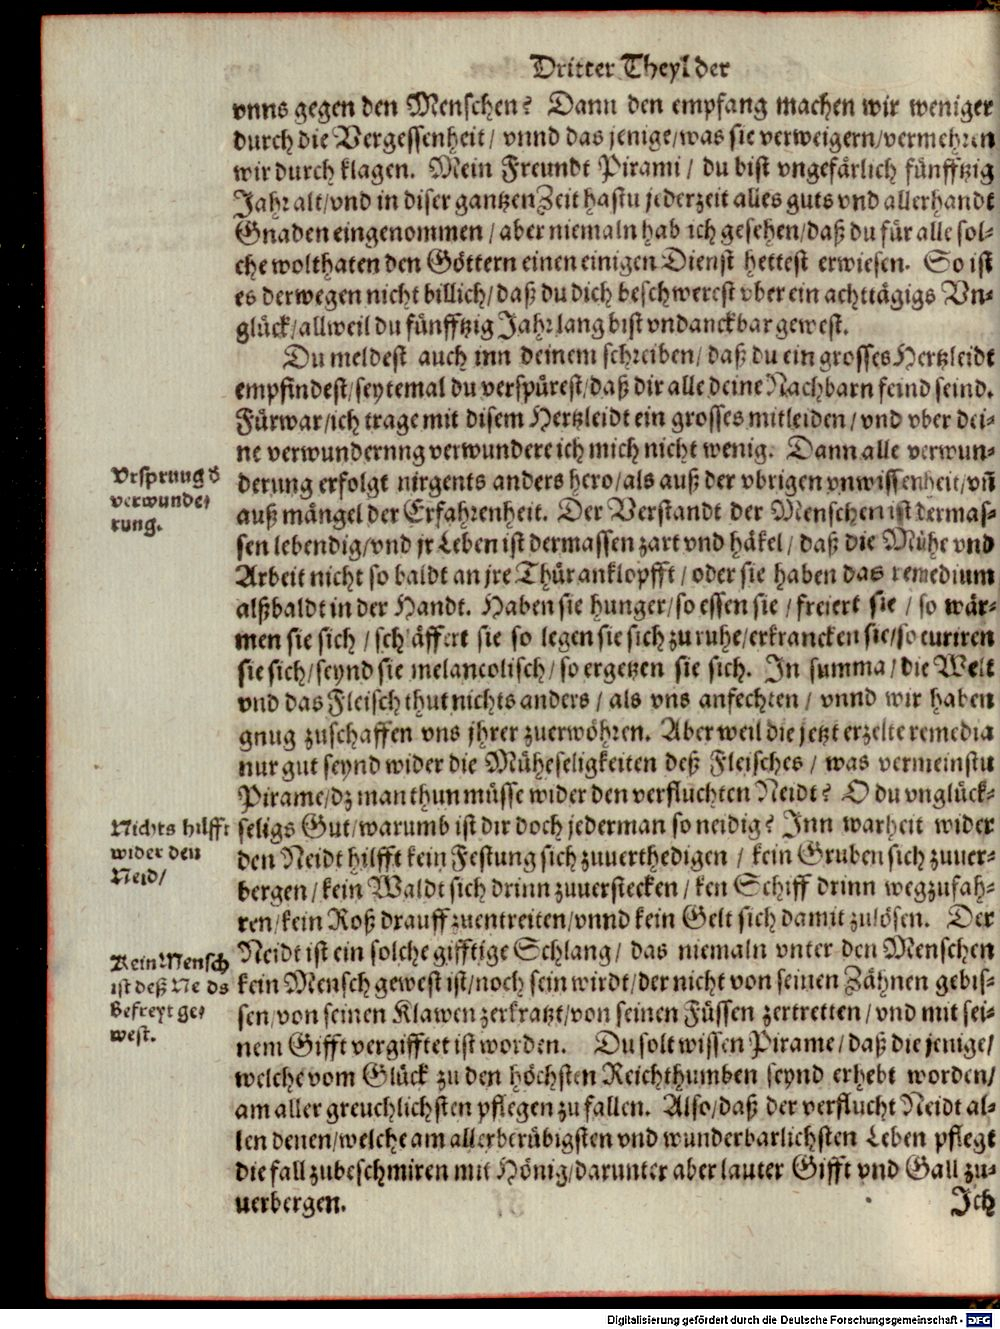 Dritter Theyl der
vnns gegen den Menschen? Dann den empfang machen wir weniger
durch die Vergessenheit / vnnd das jenige/was sie verweigern/vermehren
wir durch klagen. Mein Freundt Pirami / du bist vngefärlich fünfftzig
Jahr alt/vnd in diser gantzen Zeit hastu jederzeit alles guts vnd allerhandt
Gnaden eingenommen / aber niemaln hab ich gesehen/daß du für alle sol-
che wolthaten den Göttern einen einigen Dienst hettest erwiesen. So ist
es derwegen nicht billich/daß du dich beschwerest vber ein achttägigs Vn-
glück/allweil du fünfftzig Jahr lang bist vndanckbar gewest.
Du meldest auch inn deinem schreiben/ daß du ein grosses Hertzleidt
empfindest/seytemal du verspürest/daß dir alle deine Nachbarn feind seind.
Fürwar/ich trage mit disem Hertzleidt ein grosses mitleiden/vnd vber dei-
ne verwundernng verwundere ich mich nicht wenig. Dann alle verwun-
Vrsprung d
verwunde-
rung.
derung erfolgt nirgents anders hero/als auß der vbrigen vnwissenheit/vñ
auß mängel der Erfahrenheit. Der Verstandt der Menschen ist dermas-
sen lebendig/vnd jr Leben ist dermassen zart vnd häkel / daß die Mühe vnd
Arbeit nicht so baldt an jre Thür anklopfft / oder sie haben das remedium
alßbaldt in der Handt. Haben sie hunger/so essen sie / freiert sie / so wär-
men sie sich / schläffert sie so legen sie sich zu ruhe/erkrancken sie/so curiren
sie sich/seynd sie melancolisch/so ergetzen sie sich. In summa / die Welt
vnd das Fleisch thut nichts anders / als vns anfechten / vnnd wir haben
gnug zuschaffen vns jhrer zuerwöhren. Aber weil die jetzt erzelte remedia
nur gut seynd wider die Müheseligkeiten deß Fleisches / was vermeinstu
Pirame/dz man thun müsse wider den verfluchten Neidt? O du vnglück-
Nichts hilfft
wider den
Neid/
seligs Gut/warumb ist dir doch jederman so neidig? Inn warheit wider
den Neidt hilfft kein Festung sich zuuerthedigen / kein Gruben sich zuuer-
bergen/kein Waldt sich drinn zuuerstecken / ken Schiff drinn wegzufah-
ren/kein Roß drauff zuentreiten/vnnd kein Gelt sich damit zulösen. Der
Kein Mensch
ist deß Ne ds
befreyt ge-
west.
Neidt ist ein solche gifftige Schlang/ das niemaln vnter den Menschen
kein Mensch gewest ist/noch sein wirdt/der nicht von seinen Zähnen gebis-
sen/von seinen Klawen zerkratzt/von seinen Füssen zertretten / vnd mit sei-
nem Gifft vergifftet ist worden. Du solt wissen Pirame / daß die jenige/
welche vom Glück zu den höchsten Reichthumben seynd erhebt worden/
am aller greuchlichsten pflegen zu fallen. Also/daß der verflucht Neidt al-
len denen/welche am allerberübigsten vnd wunderbarlichsten Leben pflegt
die fall zubeschmiren mit Hönig/darunter aber lauter Gifft vnd Gall zu-
uerbergen.
Ich
Digitalisierung gefördert durch die Deutsche Forschungsgemeinschaft - DFG